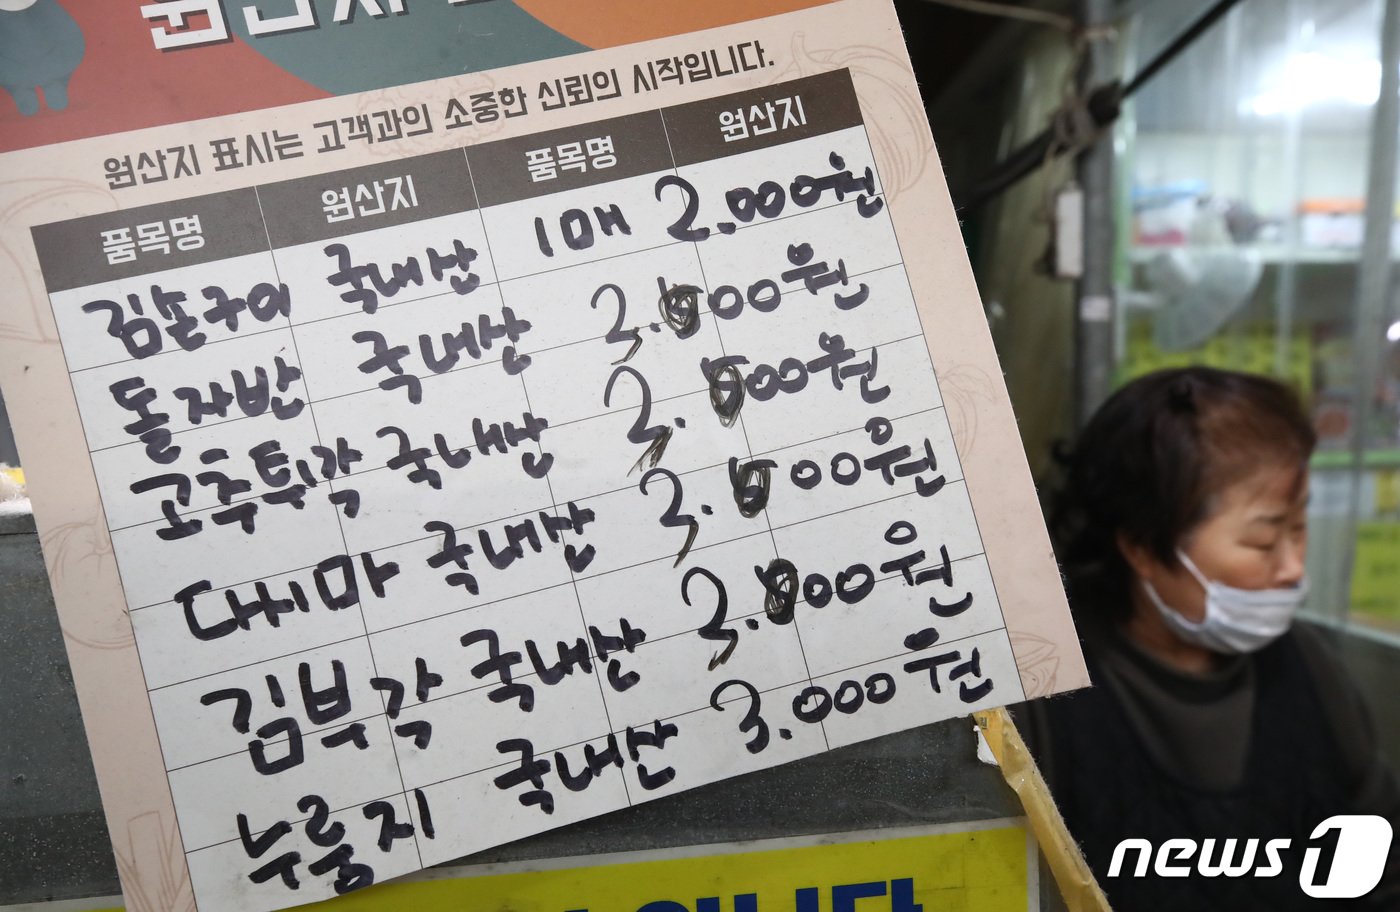 원산지
원산지 표시는 고객과의 소중한 신뢰의 시작입니다.
품목명 원산지 품목명 원산지
김손구이 국내산 1매 2.000원
돌자반 국내산 3.000원
고추튀각 국내산 3.000원
다시마 국내산 3.000원
김부각 국내산 3.000원
누룽지 국내산 3.000원
news1